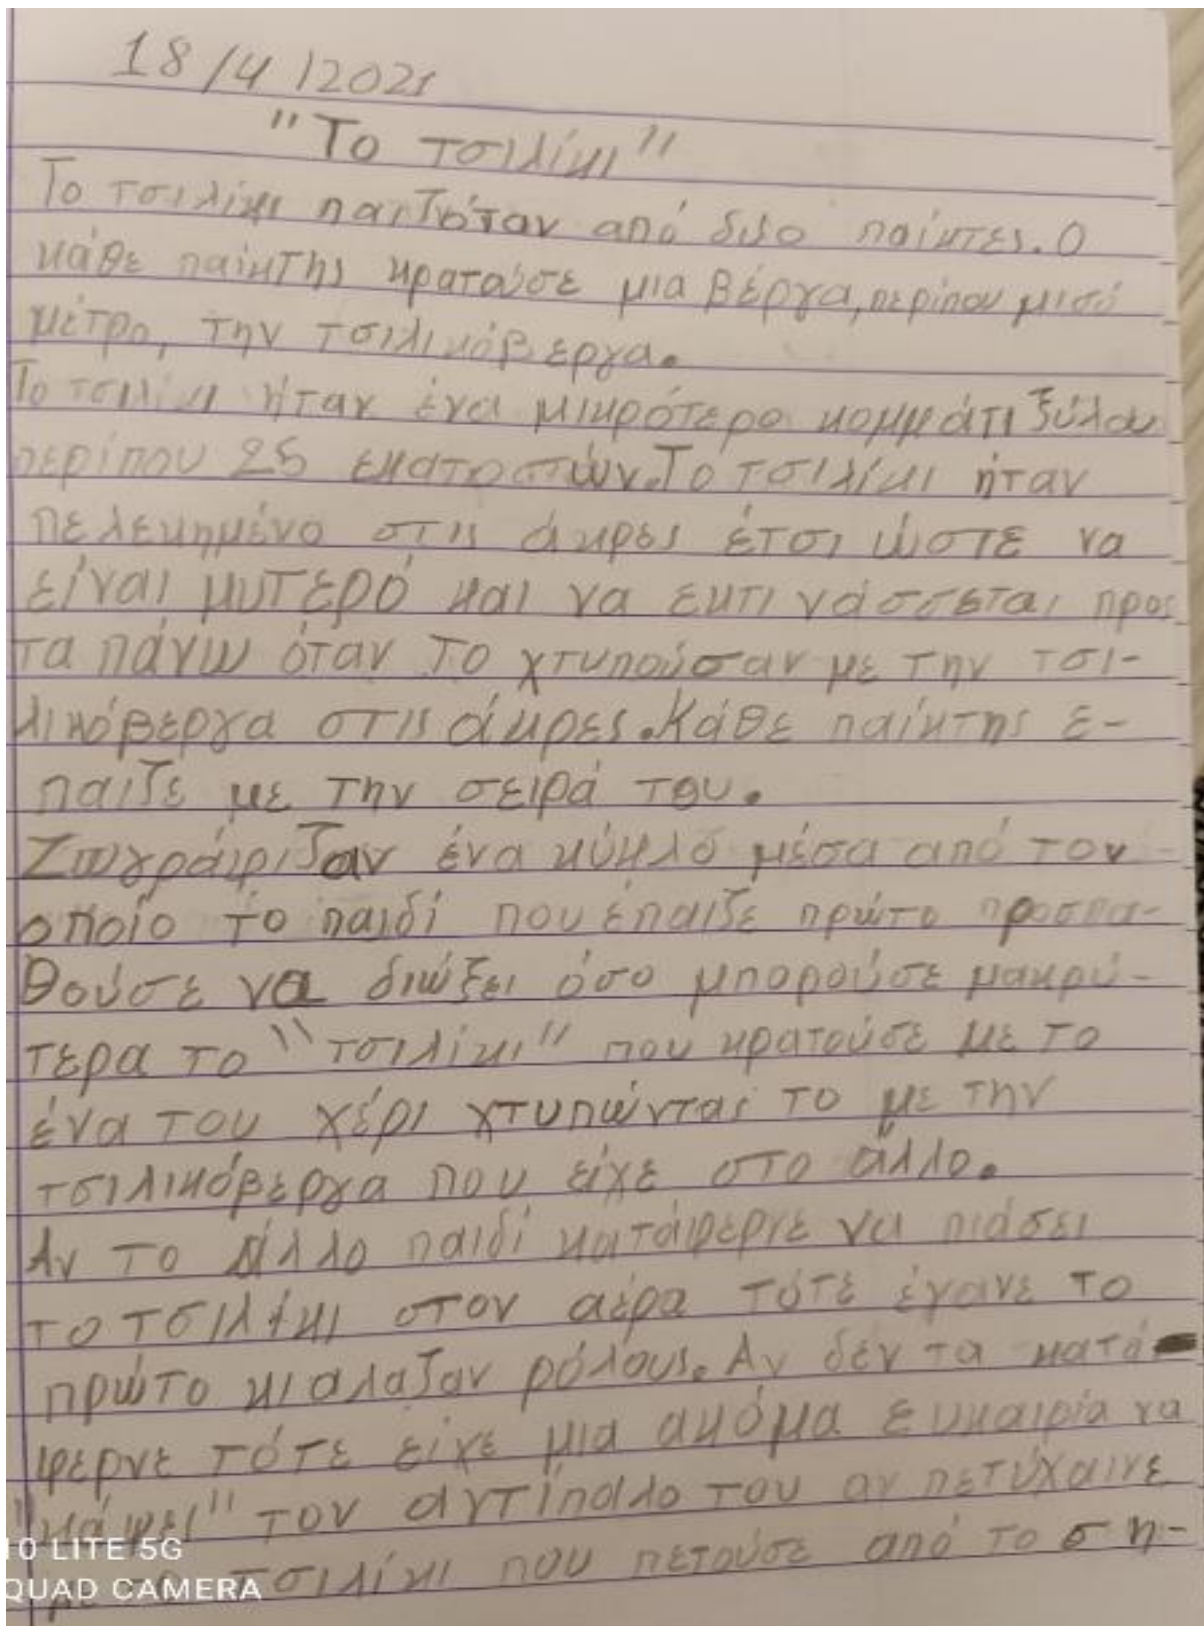 18/4/2021
"Το τσιλίκι"
Το τσιλίκι παιζόταν από δύο παίκτες. Ο
κάθε παίκτης κρατούσε μια βέργα, περίπου μισό
μέτρο, την τσιλικόβεργα.
Το τσιλίκι ήταν ένα μικρότερο κομμάτι ξύλου
περίπου 25 εκατοστών. Το τσιλίκι ήταν
πελεκημένο στις άκρες έτσι ώστε να
είναι μυτερό και να εκτινάσσεται προς
τα πάνω όταν το χτυπούσαν με την τσι-
λικόβεργα στις άκρες. Κάθε παίκτης έ-
παιζε με την σειρά του.
Ζωγράφιζαν ένα κύκλο μέσα από τον
οποίο το παιδί που έπαιζε πρώτο προσπα-
θούσε να διώξει όσο μπορούσε μακρύ-
τερα το "τσιλίκι" που κρατούσε με το
ένα του χέρι χτυπώντας το με την
τσιλικόβεργα που είχε στο άλλο.
Αν το άλλο παιδί κατάφερνε να πιάσει
το τσιλίκι στον αέρα τότε έχανε το
πρώτο κι αλαζαν ρόλους. Αν δέν τα κατά
φερνε τότε είχε μια ακόμα ευκαιρία να
"κάψει" τον αντίπαλο του αν πετύχαινε
τσιλίκι που πετούσε από το ση-
10 LITE 5G
QUAD CAMERA